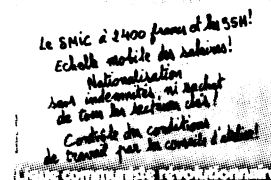 Le SMIC à 2400 francs et les 35H!
Echelle mobile des salaires!
Nationalisation
sans indemnités, ni rachat
de tous les secteurs clés!
Contrôle des conditions
de travail par les conseils d'atelier!
Ligue communiste révolutionnaire